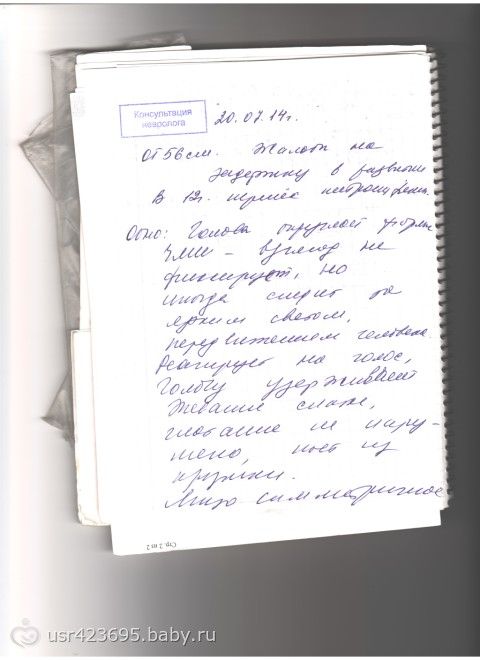 Консультация
невролога
20.07.14г.
ОГ 56 см. Жалобы на
задержку в развитии
В 12г. перенёс
Объ: Голова округлой формы
ЧМН - взгляд не
фиксирует, но
иногда следит за
ярким светом,
передвижением человека.
Реагирует на голос,
Голову удерживает
Жевание слабое,
глотание не нару-
шено, пьёт из
кружки.
Лицо симметричное
Стр. 2 из 2
usr423695.baby.ru